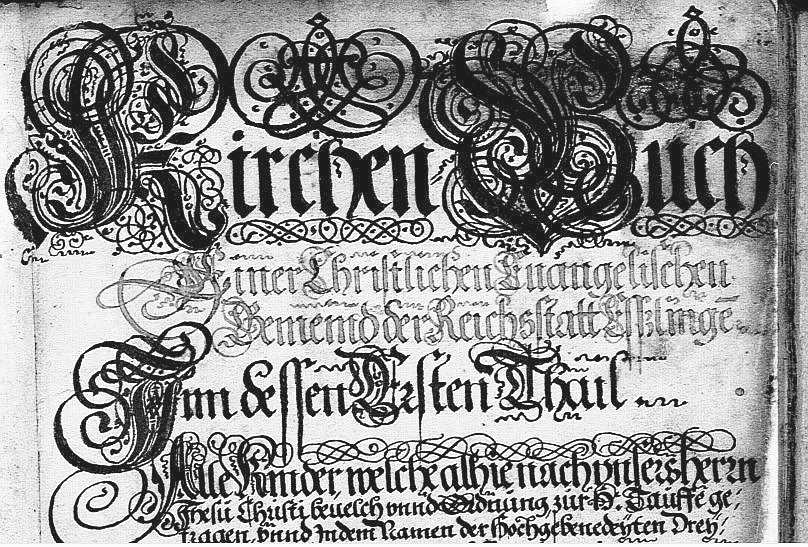 Kirchen-Buch
Einer Christlichen Euangelischen
Gemeind der Reichsstatt Esslinge͞
Inn dessen Ersten Thail
Alle Kinder, welche alhie nach vnsers herrn
Jhesu Christi beuelch vnnd Ordnung zur H: Tauffe ge-
tragen, vnnd Jndem Namen der Hochgebenedeyten Drey-